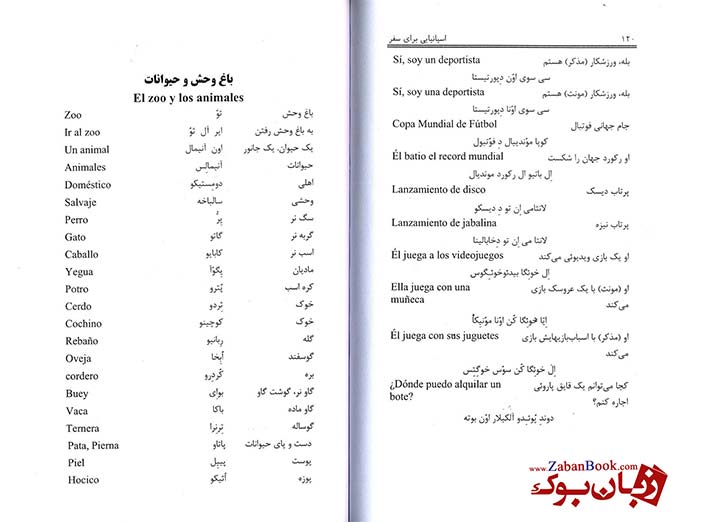 ۱۲۰ اسپانیایی برای سفر
Sí, soy un deportista بله، ورزشکار (مذکر) هستم
سی سوی اوْن دِپورتیستا
Sí, soy una deportista بله، ورزشکار (مونث) هستم
سی سوی اوْنا دِپورتیستا
Copa Mundial de Fútbol جام جهانی فوتبال
کوپا موْندیبال دِ فوْتبول
Él batio el record mundial او رکورد جهان را شکست
اِل باتیو ال رکورد موندیال
Lanzamiento de disco پرتاب دیسک
لانثامی اِن تو دِ دیسکو
Lanzamiento de jabalina پرتاب نیزه
لانثا می اِن تو دِخابالینا
Él juega a los videojuegos او یک بازی ویدیوئی می‌کند
اِل خوئِگا بیدئوخوئِگوس
Ella juega con una muñeca او (مونث) با یک عروسک بازی می‌کند
اِیّا خوئِگا کُن اوْنا موْنیِکا
Él juega con sus juguetes او (مذکر) با اسباب‌بازیهایش بازی می‌کند
اِل خوئِگا کُن سوْس خوگِتِس
¿Dónde puedo alquilar un bote? کجا می‌توانم یک قایق پاروئی اجاره کنم؟
دوندِ پوُئِدو آلکیلار اوْن بوته
باغ وحش و حیوانات
El zoo y los animales
Zoo ثوْ باغ وحش
Ir al zoo ایر آل ثوْ به باغ وحش رفتن
Un animal اون آنیمال یک حیوان، یک جانور
Animales آنیمالِس حیوانات
Doméstico دومِستیکو اهلی
Salvaje سالباخه وحشی
Perro پِرُّ سگ نر
Gato گاتو گربه نر
Caballo کابایو اسب نر
Yegua یِگوْآ مادیان
Potro پُترو کره اسب
Cerdo ثِردو خوک
Cochino کوچینو خوک
Rebaño رِبانیو گله
Oveja اُبِخا گوسفند
cordero کُردِرو بره
Buey بوای گاو نر، گوشت گاو
Vaca باکا گاو ماده
Ternera تِرنِرا گوساله
Pata, Pierna پاتاو دست و پای حیوانات
Piel پییِل پوست
Hocico اُثیکو پوزه
www.ZabanBook.com
زبان بوک